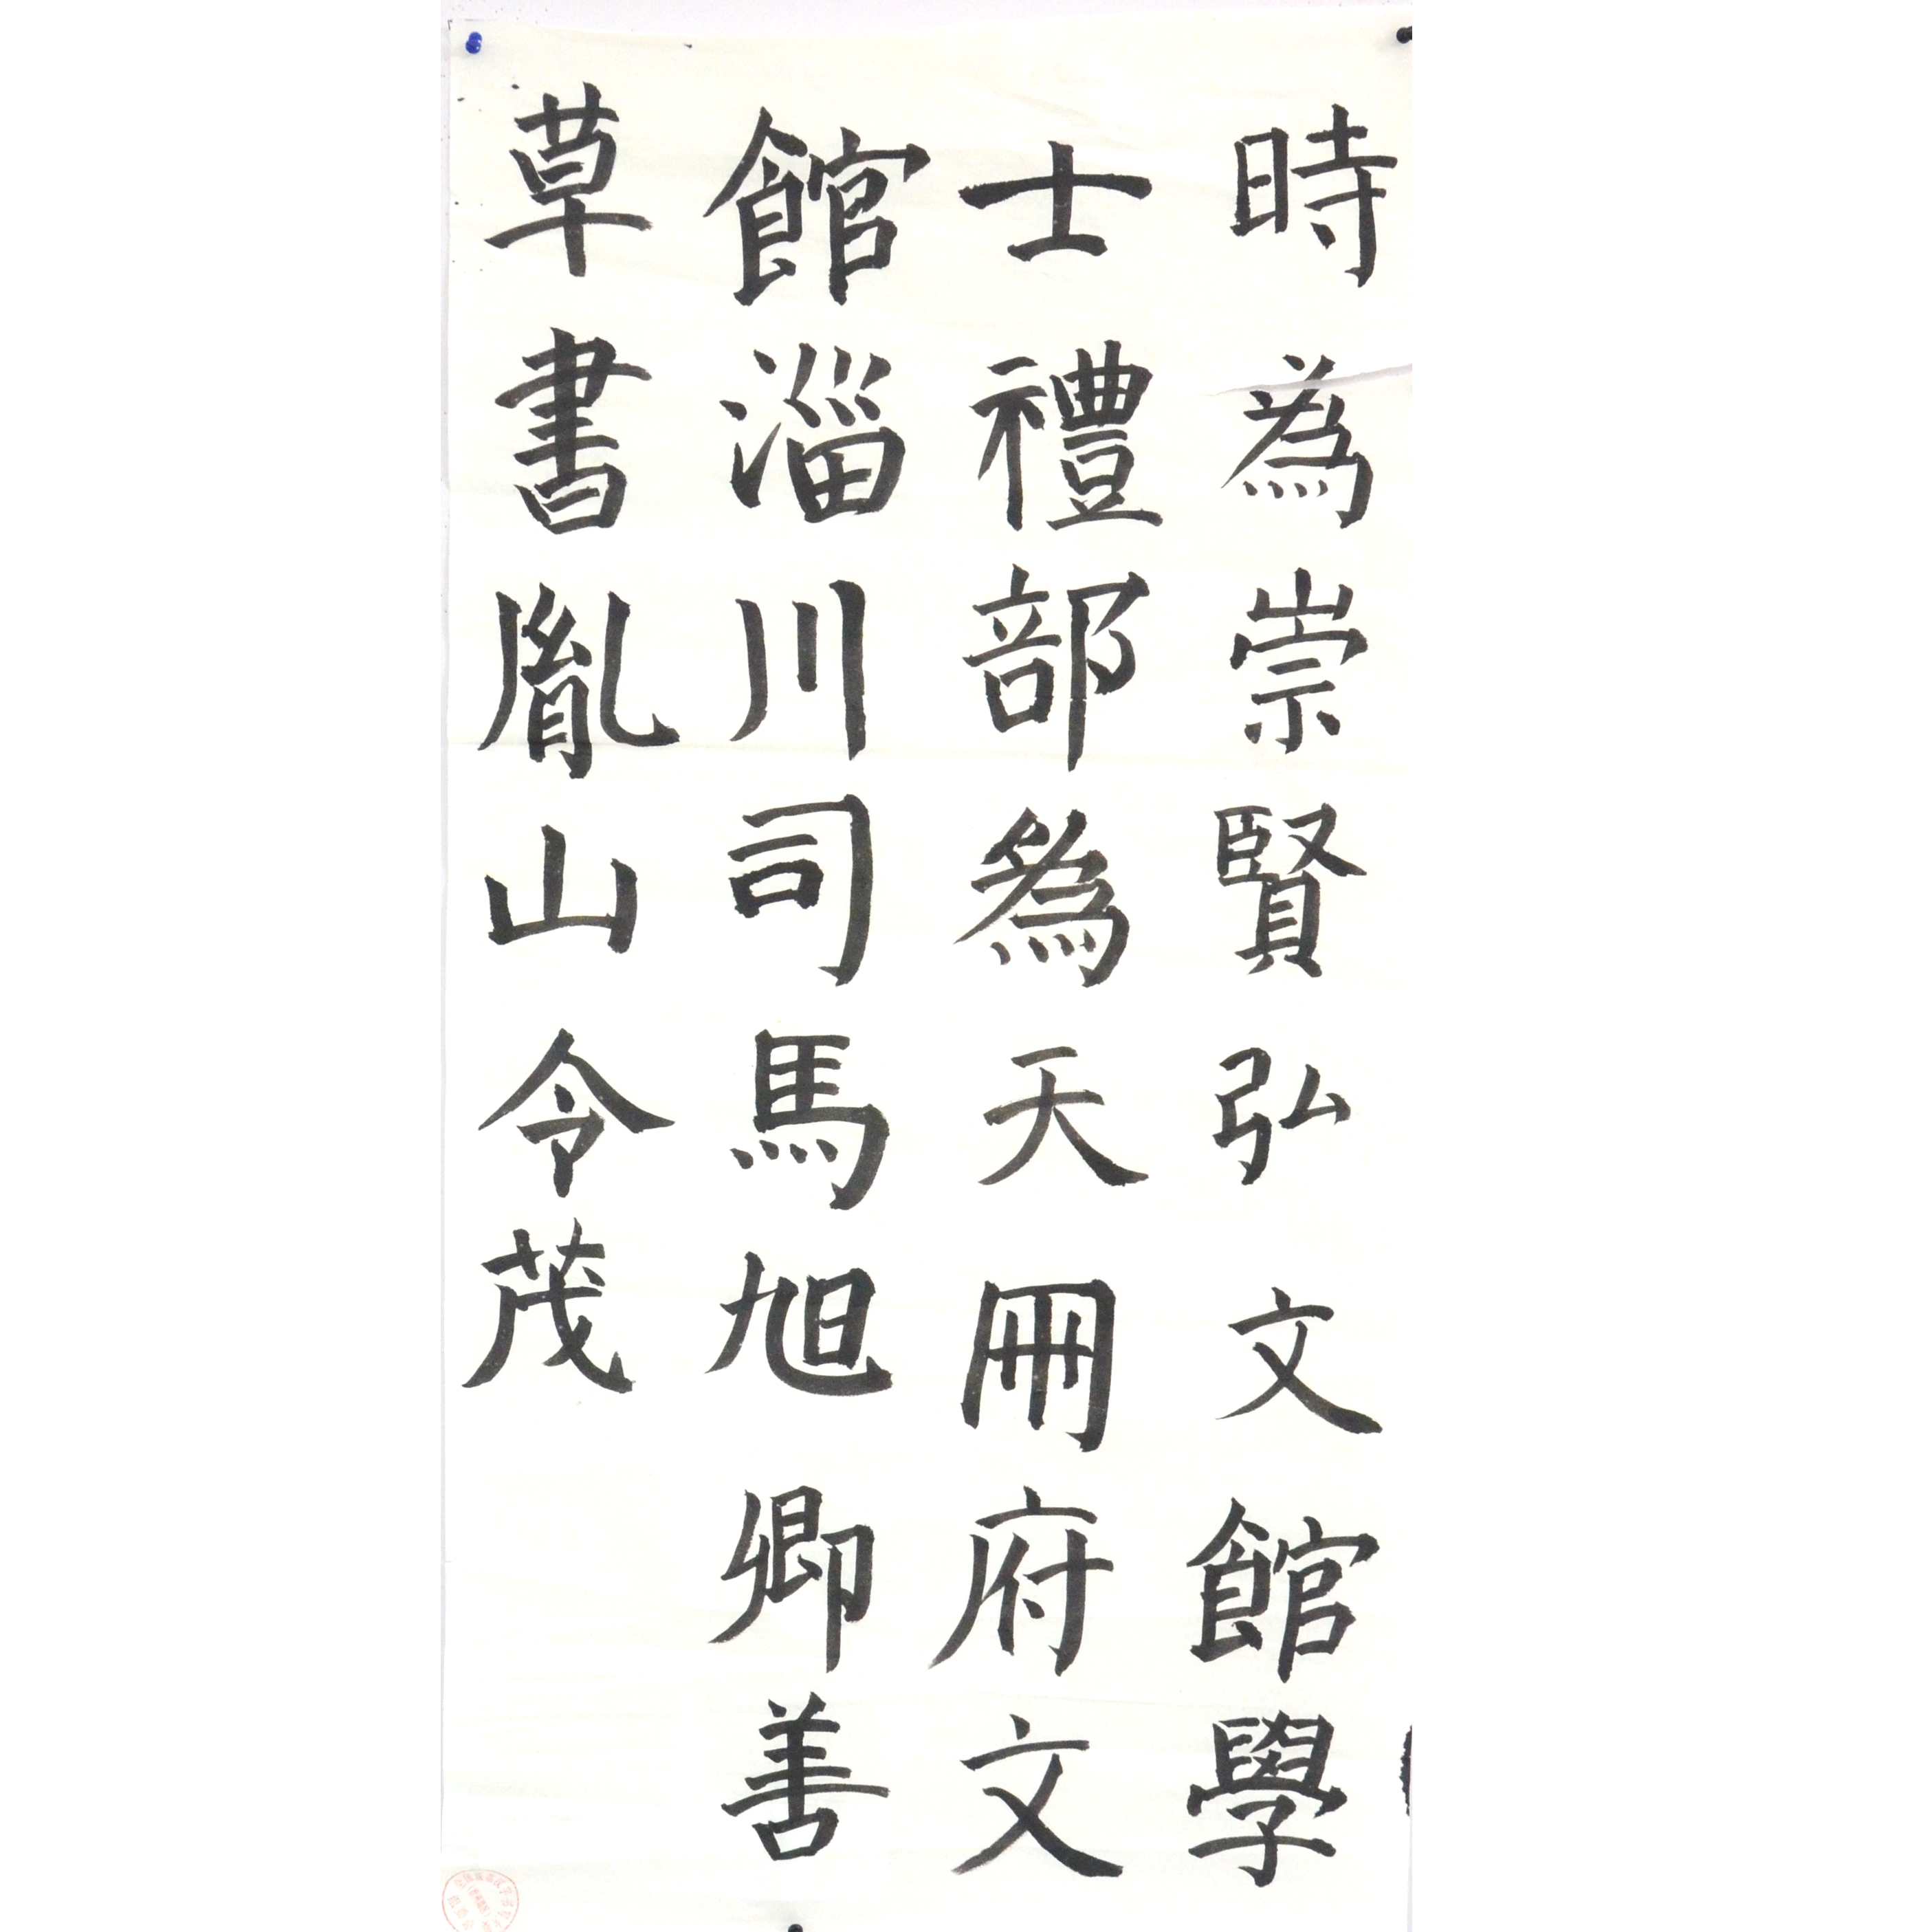 時為崇賢弘文館學
士禮部為天冊府文
館淄川司馬旭卿善
草書胤山令茂